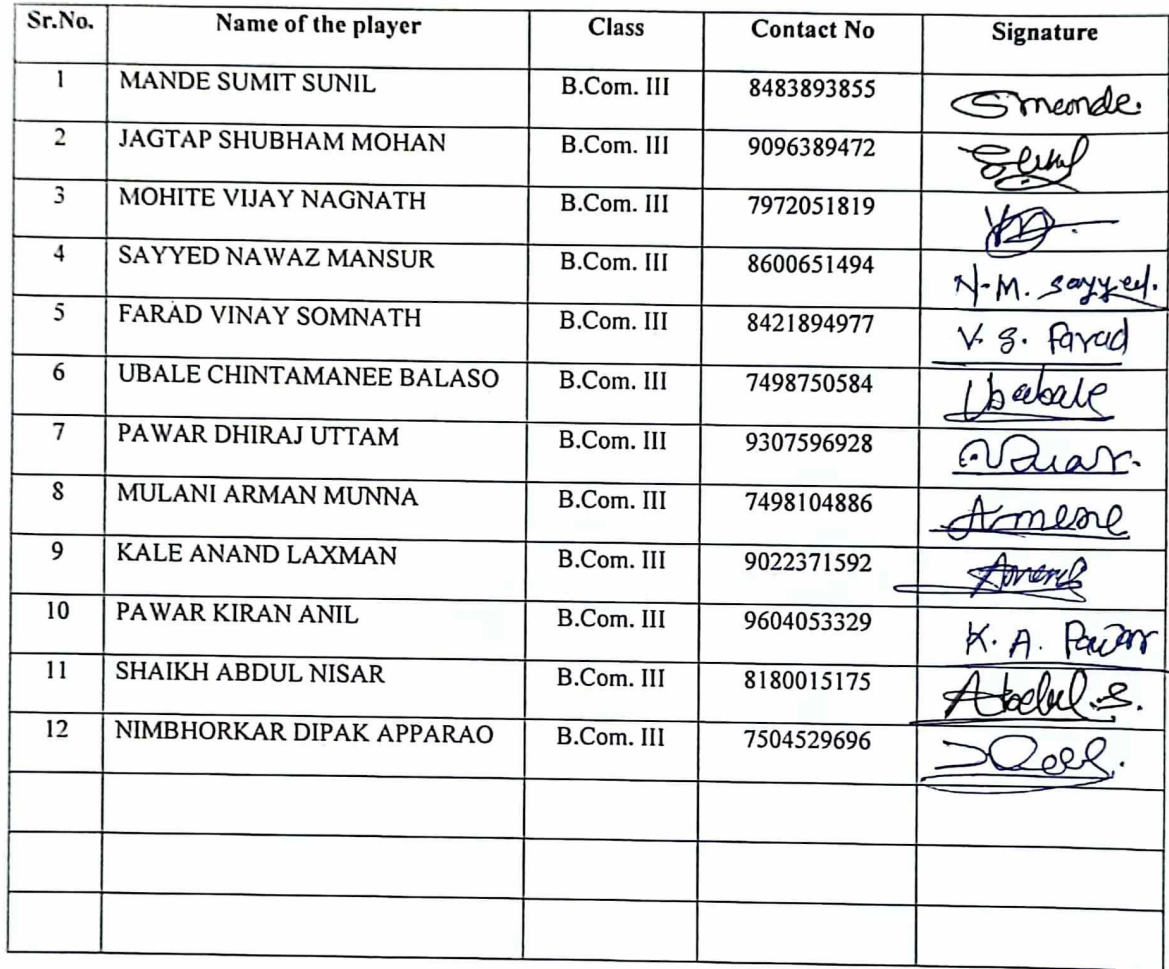 Sr.No. Name of the player Class Contact No Signature
1 MANDE SUMIT SUNIL B.Com. III 8483893855 Smande.
2 JAGTAP SHUBHAM MOHAN B.Com. III 9096389472
3 MOHITE VIJAY NAGNATH B.Com. III 7972051819
4 SAYYED NAWAZ MANSUR B.Com. III 8600651494 N.M. Sayyed.
5 FARAD VINAY SOMNATH B.Com. III 8421894977 V. S. Farad
6 UBALE CHINTAMANEE BALASO B.Com. III 7498750584
7 PAWAR DHIRAJ UTTAM B.Com. III 9307596928
8 MULANI ARMAN MUNNA B.Com. III 7498104886
9 KALE ANAND LAXMAN B.Com. III 9022371592
10 PAWAR KIRAN ANIL B.Com. III 9604053329 K. A. Pawar
11 SHAIKH ABDUL NISAR B.Com. III 8180015175 Abdul .S.
12 NIMBHORKAR DIPAK APPARAO B.Com. III 7504529696